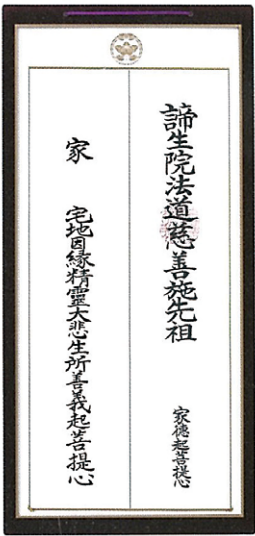 諦生院法道慈善施先祖
家徳起菩提心
家
宅地因縁精霊大悲生所善義起菩提心